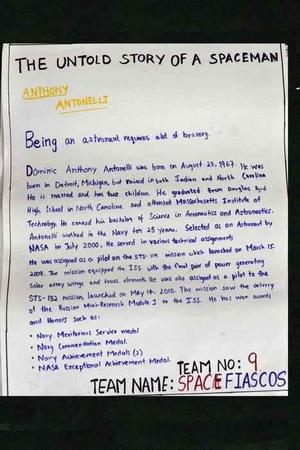 THE UNTOLD STORY OF A SPACEMAN
ANTHONY
ANTONELLI
Being an astronaut requires alot of bravery.
Dominic Anthony Antonelli was born on August 23, 1967. He was
born in Detroit, Michigan, but raised in both Indian and North Carolina
He is married and has two children. He graduated from Douglas Byrd
High School in North Carolina and attended Massachusetts Institute of
Technology. He earned his bachelor of Science in Aeronautics and Astronautics.
Antonelli worked in the Navy for 25 years. Selected as an Astronaut by
NASA in July 2000, He served in various technical assignments
He was assigned as a pilot on the STS-119 mission which launched on March 15
2009. The mission equipped the ISS with the final pair of power generating
Solar array wings and truss elements. He was also assigned as a pilot to the
STS-132 mission launched on May 14, 2010. The mission saw the delivery
of the Russian Mini-Research Module 1 to the ISS. He has won awards
and Honors such as:
• Navy Meritorious Service medal
• Navy Commendation Medal.
• Navy Achievement Medals (2)
• NASA Exceptional Achievement Medal.
TEAM NO: 9
TEAM NAME: SPACE FIASCOS